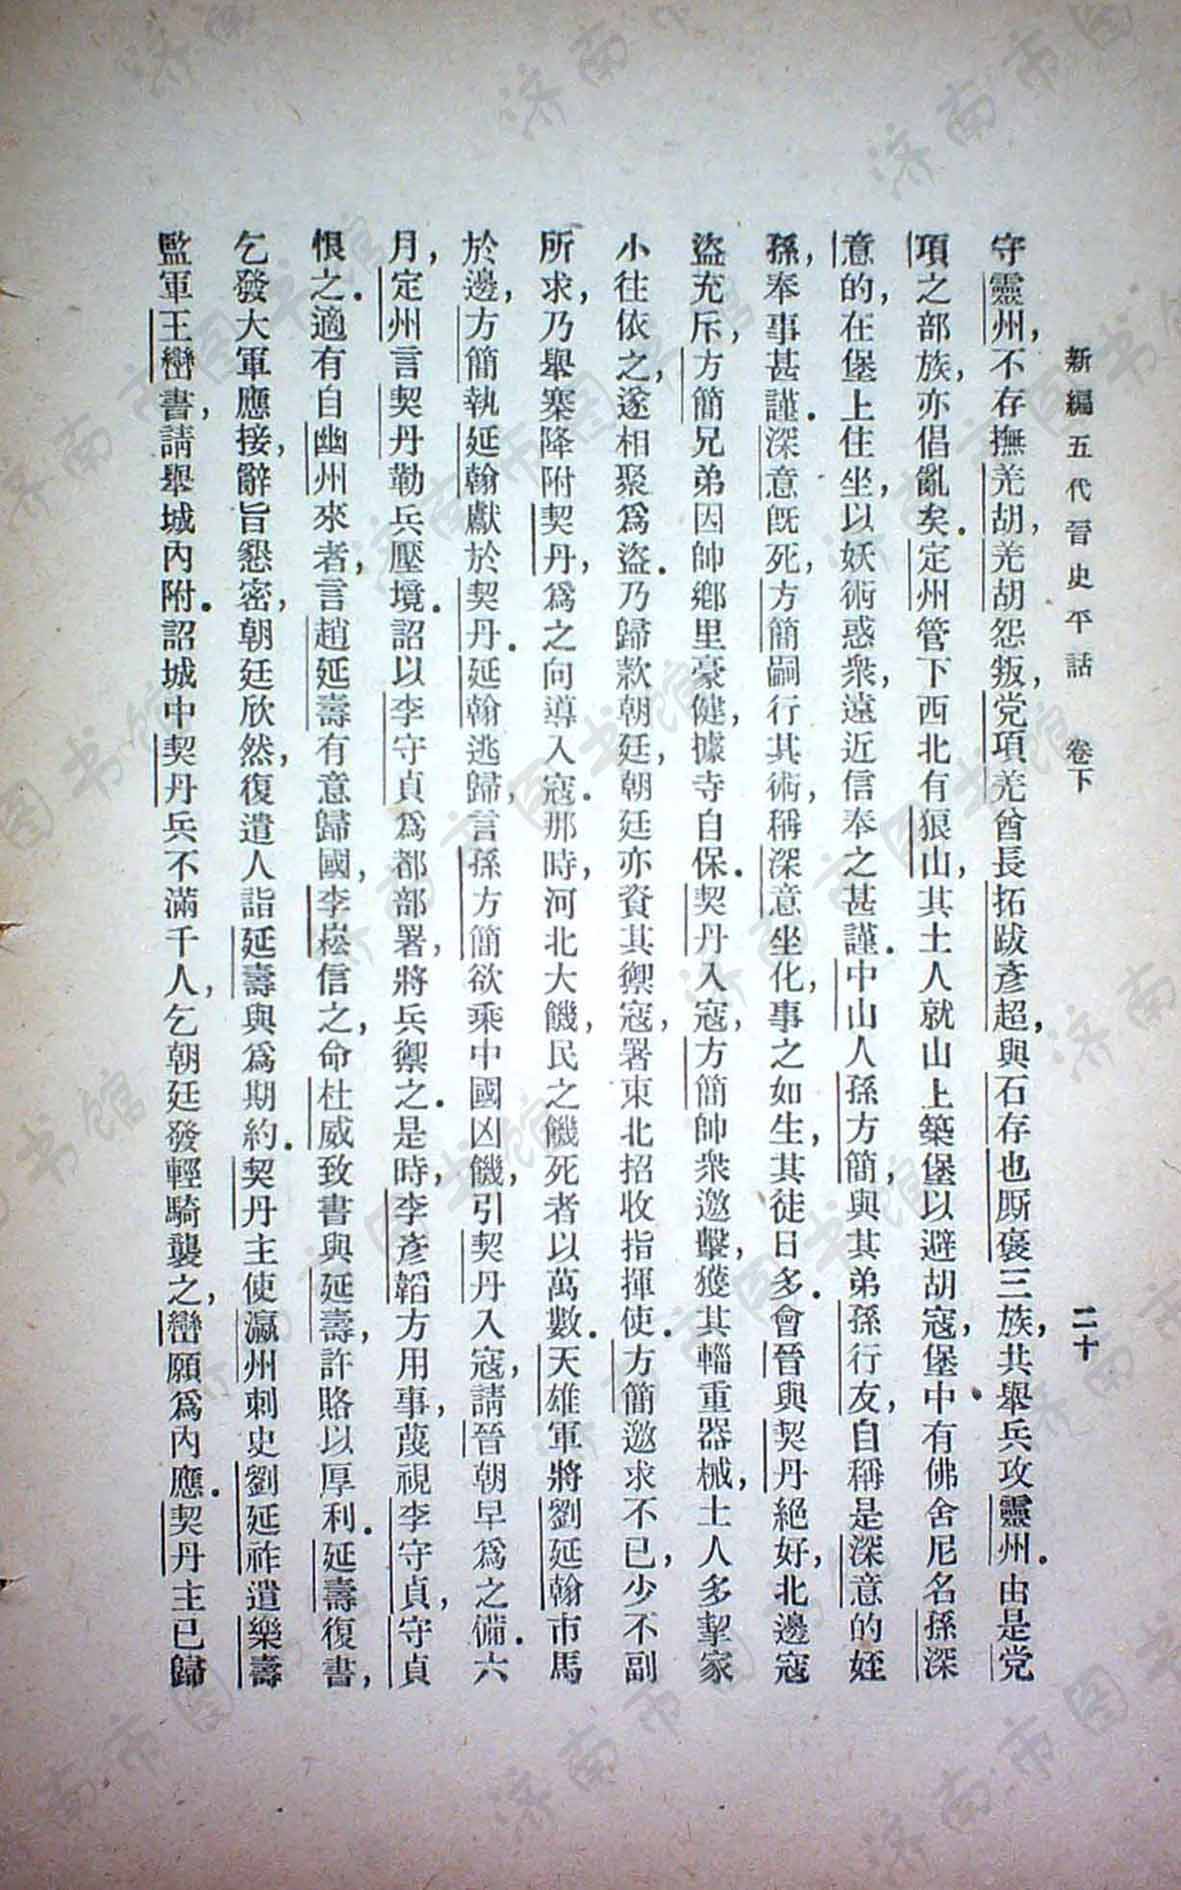 新編五代晉史平話　卷下　二十
守靈州，不存撫羌胡，羌胡怨叛，党項羌酋長拓跋彥超，與石存也厮褒三族，共舉兵攻靈州。由是党
項之部族，亦倡亂矣。定州管下西北有狼山，其土人就山上築堡以避胡寇，堡中有佛舍尼名孫深
意的，在堡上住坐，以妖術惑衆，遠近信奉之甚謹。中山人孫方簡，與其弟孫行友，自稱是深意的姪
孫，奉事甚謹。深意旣死，方簡嗣行其術，稱深意坐化，事之如生，其徒日多。會晉與契丹絕好，北邊寇
盜充斥，方簡兄弟因帥鄉里豪健，據寺自保。契丹入寇，方簡帥衆邀擊，獲其輜重器械，土人多挈家
小往依之，遂相聚爲盜。乃歸款朝廷，朝廷亦資其禦寇，署東北招收指揮使。方簡邀求不已，少不副
所求，乃舉寨降附契丹，爲之向導入寇。那時，河北大饑，民之饑死者以萬數。天雄軍將劉延翰市馬
於邊，方簡執延翰獻於契丹。延翰逃歸，言孫方簡欲乘中國凶饑，引契丹入寇，請晉朝早爲之備。六
月，定州言契丹勒兵壓境。詔以李守貞爲都部署，將兵禦之。是時，李彥韜方用事，蔑視李守貞，守貞
恨之。適有自幽州來者，言趙延壽有意歸國，李崧信之，命杜威致書與延壽，許賂以厚利。延壽復書，
乞發大軍應接，辭旨懇密，朝廷欣然，復遣人詣延壽與爲期約。契丹主使瀛州刺史劉延祚遣樂壽
監軍王巒書，請舉城內附。詔城中契丹兵不滿千人，乞朝廷發輕騎襲之，巒願爲內應。契丹主已歸
济南市图书馆